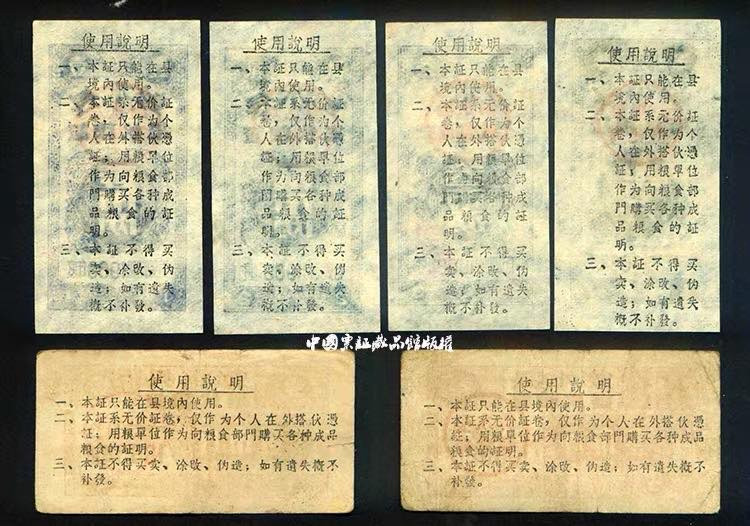 使用說明
一、本証只能在县
境內使用。
二、本証系无价証
卷，仅作为个
人在外搭伙憑
証；用粮單位
作为向粮食部
門購买各种成
品粮食的証
明。
三、本証不得买
卖、涂改、伪
造；如有遺失
概不补發。
使用說明
一、本証只能在县
境內使用。
二、本証系无价証
卷，仅作为个
人在外搭伙憑
証；用粮單位
作为向粮食部
門購买各种成
品粮食的証
明。
三、本証不得买
卖、涂改、伪
造；如有遺失
概不补發。
使用說明
一、本証只能在县
境內使用。
二、本証系无价証
卷，仅作为个
人在外搭伙憑
証；用粮單位
作为向粮食部
門購买各种成
品粮食的証
明。
三、本証不得买
卖、涂改、伪
造；如有遺失
概不补發。
使用說明
一、本証只能在县
境內使用。
二、本証系无价証
卷，仅作为个
人在外搭伙憑
証；用粮單位
作为向粮食部
門購买各种成
品粮食的証
明。
三、本証不得买
卖、涂改、伪
造；如有遺失
概不补發。
中國票証藏品館版權
使用說明
一、本証只能在县境內使用。
二、本証系无价証卷，仅作为个人在外搭伙憑
証；用粮單位作为向粮食部門購买各种成品
粮食的証明。
三、本証不得买卖、涂改、伪造；如有遺失概不
补發。
使用說明
一、本証只能在县境內使用。
二、本証系无价証卷，仅作为个人在外搭伙憑
証；用粮單位作为向粮食部門購买各种成品
粮食的証明。
三、本証不得买卖、涂改、伪造；如有遺失概不
补發。